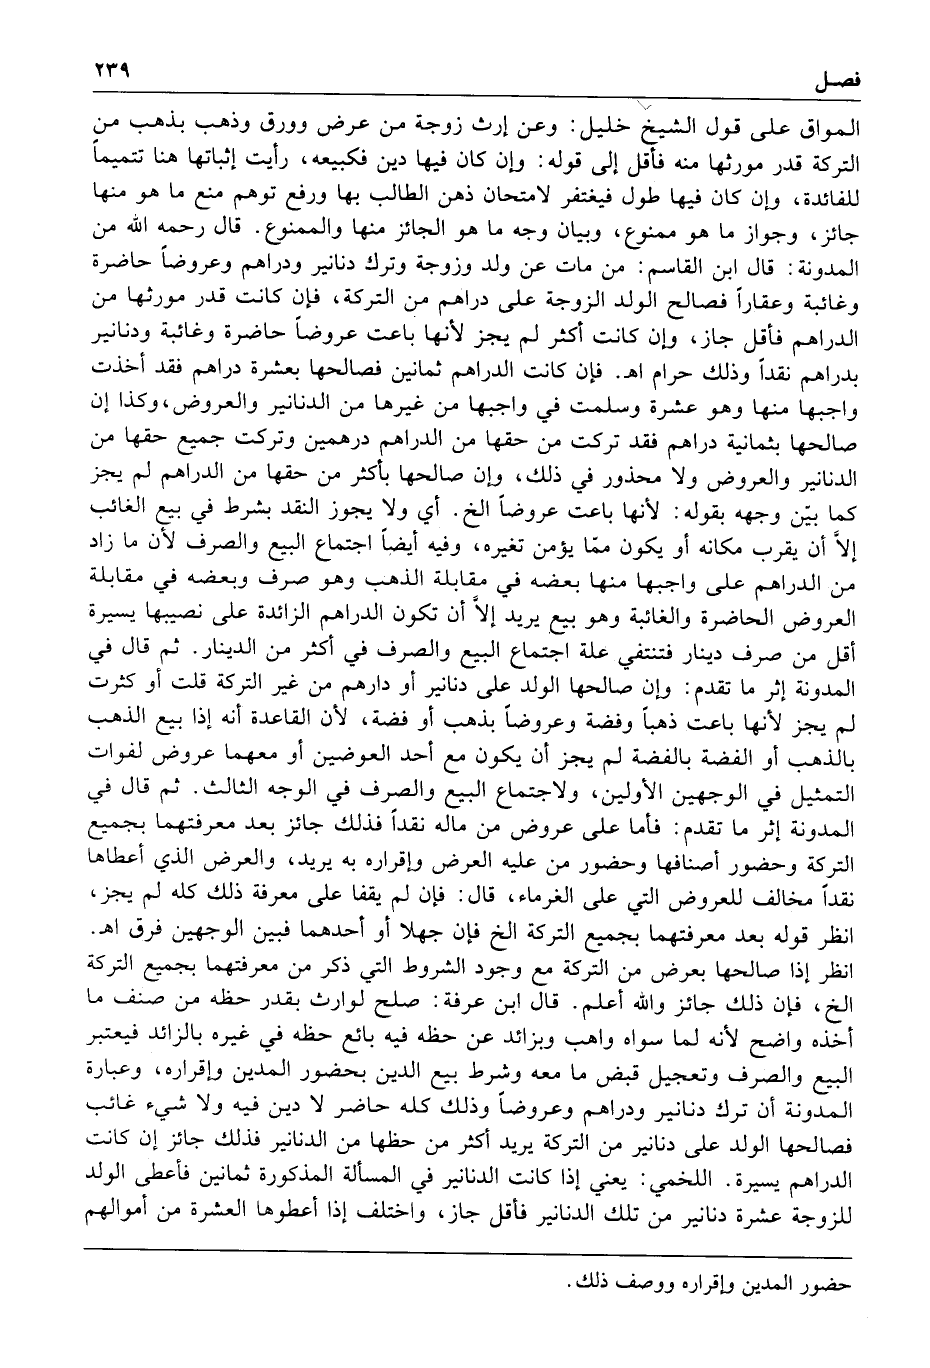 فصـل
٢٣٩
المواق على قول الشيخ خليل: وعن إرث زوجة من عرض وورق وذهب بذهب من
التركة قدر مورثها منه فأقل إلى قوله: وإن كان فيها دين فكبيعه، رأيت إثباتها هنا تتميماً
للفائدة، وإن كان فيها طول فيغتفر لامتحان ذهن الطالب بها ورفع توهم منع ما هو منها
جائز، وجواز ما هو ممنوع، وبيان وجه ما هو الجائز منها والممنوع. قال رحمه الله من
المدونة: قال ابن القاسم: من مات عن ولد وزوجة وترك دنانير ودراهم وعروضاً حاضرة
وغائبة وعقاراً فصالح الولد الزوجة على دراهم من التركة، فإن كانت قدر مورثها من
الدراهم فأقل جاز، وإن كانت أكثر لم يجز لأنها باعت عروضاً حاضرة وغائبة ودنانير
بدراهم نقداً وذلك حرام اهـ. فإن كانت الدراهم ثمانين فصالحها بعشرة دراهم فقد أخذت
واجبها منها وهو عشرة وسلمت في واجبها من غيرها من الدنانير والعروض، وكذا إن
صالحها بثمانية دراهم فقد تركت من حقها من الدراهم درهمين وتركت جميع حقها من
الدنانير والعروض ولا محذور في ذلك، وإن صالحها بأكثر من حقها من الدراهم لم يجز
كما بيّن وجهه بقوله: لأنها باعت عروضاً الخ. أي ولا يجوز النقد بشرط في بيع الغائب
إلاَّ أن يقرب مكانه أو يكون ممّا يؤمن تغيره، وفيه أيضاً اجتماع البيع والصرف لأن ما زاد
من الدراهم على واجبها منها بعضه في مقابلة الذهب وهو صرف وبعضه في مقابلة
العروض الحاضرة والغائبة وهو بيع يريد إلاَّ أن تكون الدراهم الزائدة على نصيبها يسيرة
أقل من صرف دينار فتنتفي علة اجتماع البيع والصرف في أكثر من الدينار. ثم قال في
المدونة إثر ما تقدم: وإن صالحها الولد على دنانير أو دارهم من غير التركة قلت أو كثرت
لم يجز لأنها باعت ذهباً وفضة وعروضاً بذهب أو فضة، لأن القاعدة أنه إذا بيع الذهب
بالذهب أو الفضة بالفضة لم يجز أن يكون مع أحد العوضين أو معهما عروض لفوات
التمثيل في الوجهين الأولين، ولاجتماع البيع والصرف في الوجه الثالث. ثم قال في
المدونة إثر ما تقدم: فأما على عروض من ماله نقداً فذلك جائز بعد معرفتهما بجميع
التركة وحضور أصنافها وحضور من عليه العرض وإقراره به يريد، والعرض الذي أعطاها
نقداً مخالف للعروض التي على الغرماء، قال: فإن لم يقفا على معرفة ذلك كله لم يجز،
انظر قوله بعد معرفتهما بجميع التركة الخ فإن جهلا أو أحدهما فبين الوجهين فرق اهـ.
انظر إذا صالحها بعرض من التركة مع وجود الشروط التي ذكر من معرفتهما بجميع التركة
الخ، فإن ذلك جائز والله أعلم. قال ابن عرفة: صلح لوارث بقدر حظه من صنف ما
أخذه واضح لأنه لما سواه واهب وبزائد عن حظه فيه بائع حظه في غيره بالزائد فيعتبر
البيع والصرف وتعجيل قبض ما معه وشرط بيع الدين بحضور المدين وإقراره، وعبارة
المدونة أن ترك دنانير ودراهم وعروضاً وذلك كله حاضر لا دين فيه ولا شيء غائب
فصالحها الولد على دنانير من التركة يريد أكثر من حظها من الدنانير فذلك جائز إن كانت
الدراهم يسيرة. اللخمي: يعني إذا كانت الدنانير في المسألة المذكورة ثمانين فأعطى الولد
للزوجة عشرة دنانير من تلك الدنانير فأقل جاز، واختلف إذا أعطوها العشرة من أموالهم
حضور المدين وإقراره ووصف ذلك.